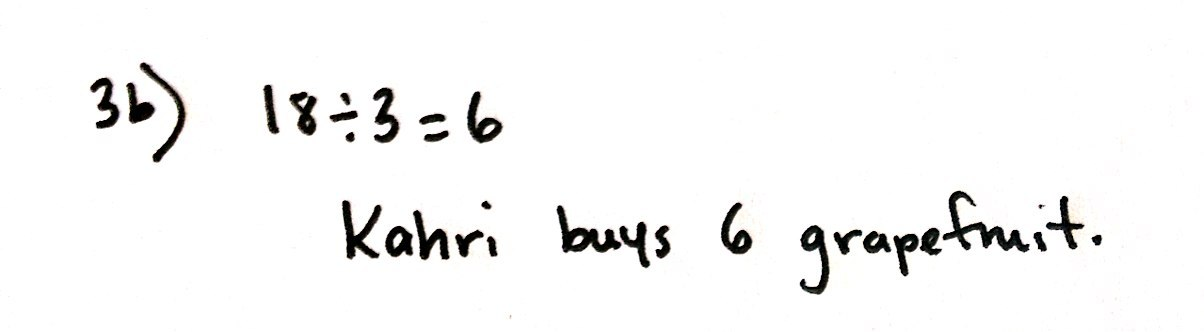 3b) 18÷3=6
Kahri buys 6 grapefruit.